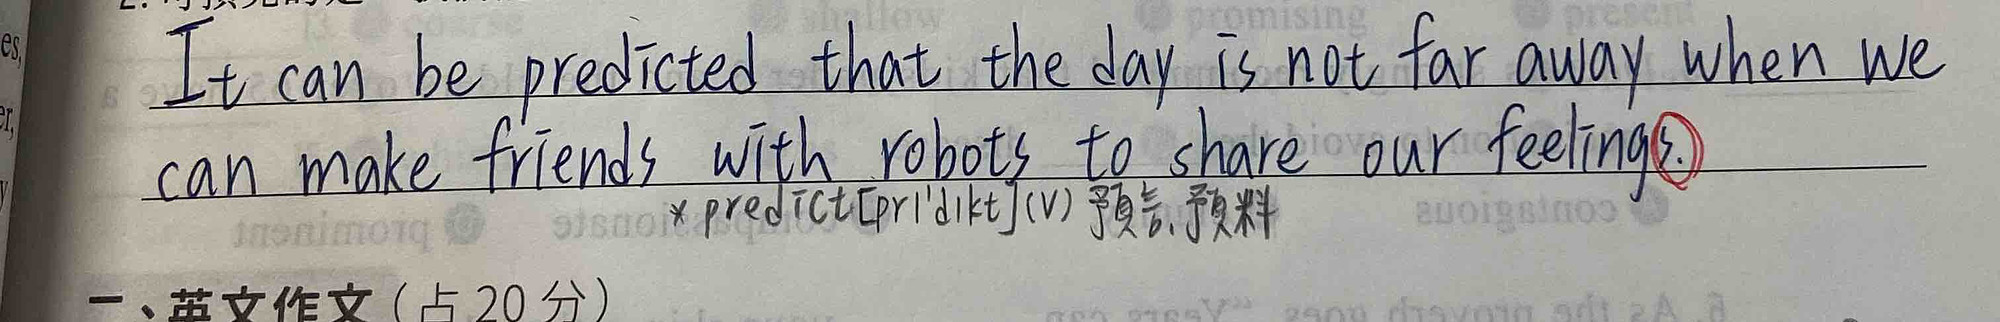 It can be predicted that the day is not far away when we
can make friends with robots to share our feelings.
* predict [prɪ'dɪkt] (v) 預言、預料
一、英文作文（占 20 分）